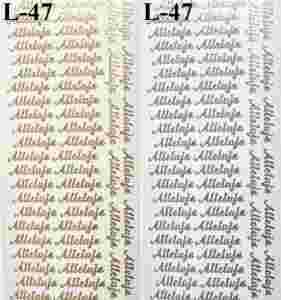 L-47
Alleluja Alleluja
Alleluja Alleluja
Alleluja Alleluja
Alleluja Alleluja
Alleluja Alleluja
Alleluja Alleluja
Alleluja Alleluja
Alleluja Alleluja
Alleluja Alleluja
Alleluja Alleluja
Alleluja Alleluja
Alleluja Alleluja
Alleluja Alleluja
Alleluja Alleluja
Alleluja Alleluja
Alleluja Alleluja
Alleluja Alleluja
Alleluja Alleluja
Alleluja Alleluja
Alleluja Alleluja
Alleluja Alleluja Alleluja Alleluja Alleluja Alleluja
Alleluja Alleluja Alleluja Alleluja Alleluja Alleluja
L-47
Alleluja Alleluja
Alleluja Alleluja
Alleluja Alleluja
Alleluja Alleluja
Alleluja Alleluja
Alleluja Alleluja
Alleluja Alleluja
Alleluja Alleluja
Alleluja Alleluja
Alleluja Alleluja
Alleluja Alleluja
Alleluja Alleluja
Alleluja Alleluja
Alleluja Alleluja
Alleluja Alleluja
Alleluja Alleluja
Alleluja Alleluja
Alleluja Alleluja
Alleluja Alleluja
Alleluja Alleluja
Alleluja Alleluja Alleluja Alleluja Alleluja Alleluja
Alleluja Alleluja Alleluja Alleluja Alleluja Alleluja